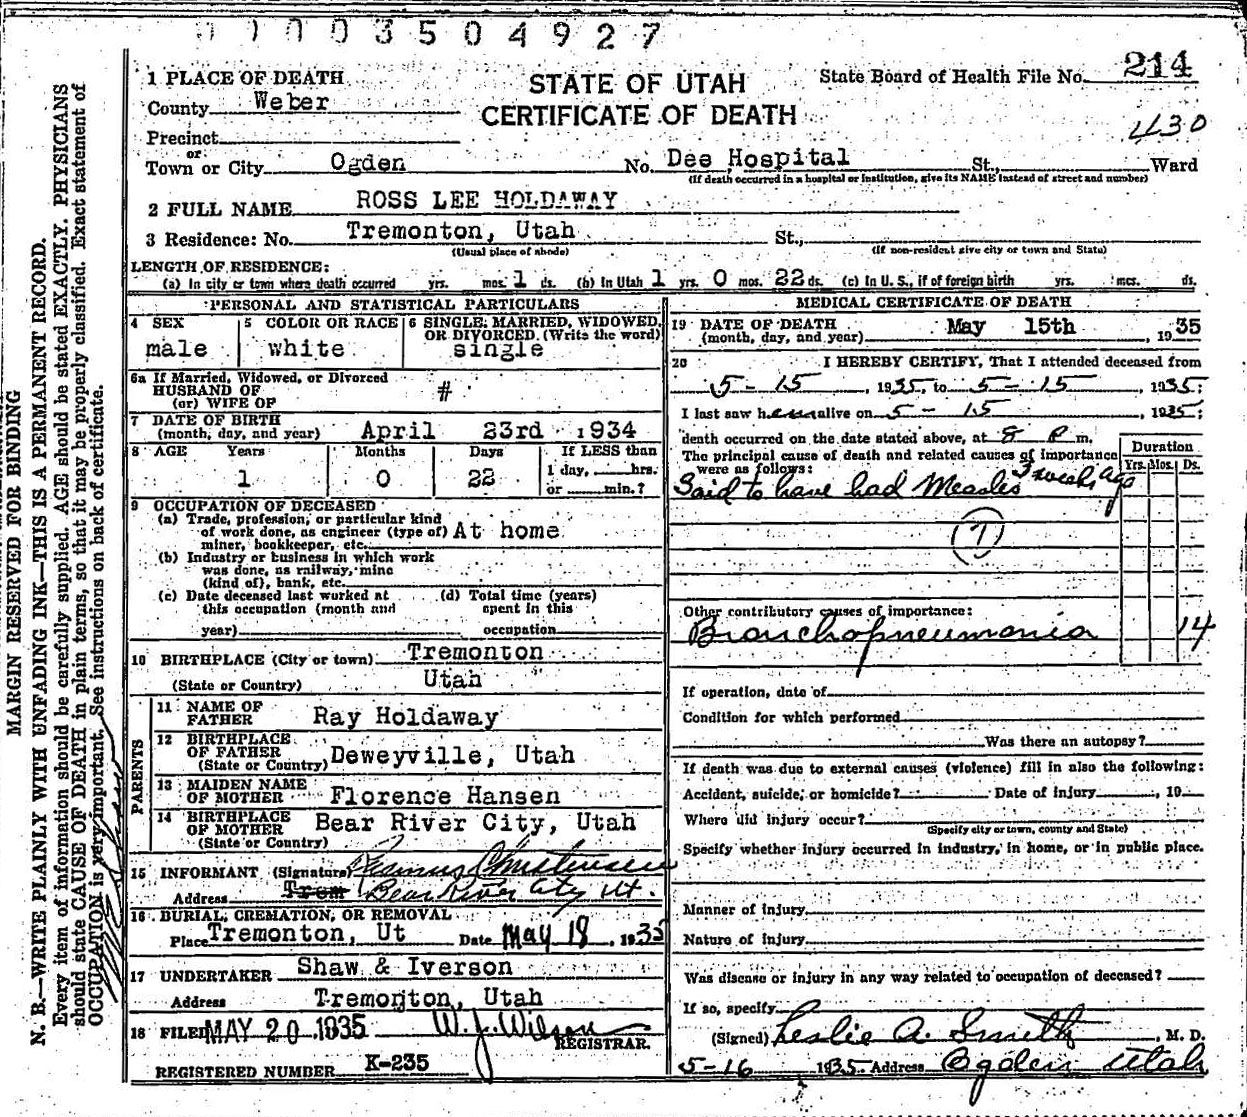 01003504927
MARGIN RESERVED FOR BINDING
N. B.—WRITE PLAINLY WITH UNFADING INK—THIS IS A PERMANENT RECORD.
Every item of information should be carefully supplied. AGE should be stated EXACTLY. PHYSICIANS
should state CAUSE OF DEATH in plain terms, so that it may be properly classified. Exact statement of
OCCUPATION is very important. See instructions on back of certificate.
1 PLACE OF DEATH
County Weber
Precinct
or
Town or City Ogden
STATE OF UTAH
CERTIFICATE OF DEATH
State Board of Health File No. 214
430
No. Dee Hospital St., Ward
(If death occurred in a hospital or institution, give its NAME instead of street and number)
2 FULL NAME ROSS LEE HOLDAWAY
3 Residence: No. Tremonton, Utah St.,
(Usual place of abode) (If non-resident give city or town and State)
LENGTH OF RESIDENCE:
(a) In city or town where death occurred yrs. mos. 1 ds. (b) In Utah 1 yrs. 0 mos. 22 ds. (c) In U. S., if of foreign birth yrs. mos. ds.
PERSONAL AND STATISTICAL PARTICULARS
4 SEX
male
5 COLOR OR RACE
white
6 SINGLE, MARRIED, WIDOWED,
OR DIVORCED (Write the word)
single
6a If Married, Widowed, or Divorced
HUSBAND OF
(or) WIFE OF #
7 DATE OF BIRTH
(month, day, and year) April 23rd 1934
8 AGE Years Months Days If LESS than
1 0 22 1 day, hrs.
or min.?
9 OCCUPATION OF DECEASED
(a) Trade, profession, or particular kind
of work done, as engineer (type of) At home
miner, bookkeeper, etc.
(b) Industry or business in which work
was done, as railway, mine
(kind of), bank, etc.
(c) Date deceased last worked at (d) Total time (years)
this occupation (month and spent in this
year) occupation
10 BIRTHPLACE (City or town) Tremonton
(State or Country) Utah
PARENTS
11 NAME OF
FATHER Ray Holdaway
12 BIRTHPLACE
OF FATHER
(State or Country) Deweyville, Utah
13 MAIDEN NAME
OF MOTHER Florence Hansen
14 BIRTHPLACE
OF MOTHER Bear River City, Utah
(State or Country)
15 INFORMANT (Signature) Christensen
Address Trem Bear River City Ut.
16 BURIAL, CREMATION, OR REMOVAL
Place Tremonton, Ut Date May 18, 1935
17 UNDERTAKER Shaw & Iverson
Address Tremonton, Utah
18 FILED MAY 20 1935 W. J. Wilson
REGISTRAR.
REGISTERED NUMBER K-235
MEDICAL CERTIFICATE OF DEATH
19 DATE OF DEATH
(month, day, and year) May 15th, 1935
20 I HEREBY CERTIFY, That I attended deceased from
5-15, 1935, to 5-15, 1935;
I last saw h alive on 5-15, 1935;
death occurred on the date stated above, at 8 P m.
The principal cause of death and related causes of importance
were as follows:
Duration
Yrs. Mos. Ds.
Said to have had Measles 3 weeks ago
(7)
Other contributory causes of importance:
Bronchopneumonia 14
If operation, date of
Condition for which performed
Was there an autopsy?
If death was due to external causes (violence) fill in also the following:
Accident, suicide, or homicide? Date of injury, 19
Where did injury occur?
(Specify city or town, county and State)
Specify whether injury occurred in industry, in home, or in public place.
Manner of injury
Nature of injury
Was disease or injury in any way related to occupation of deceased?
If so, specify
(Signed) Leslie A. Smith, M. D.
5-16 1935 Address Ogden Utah